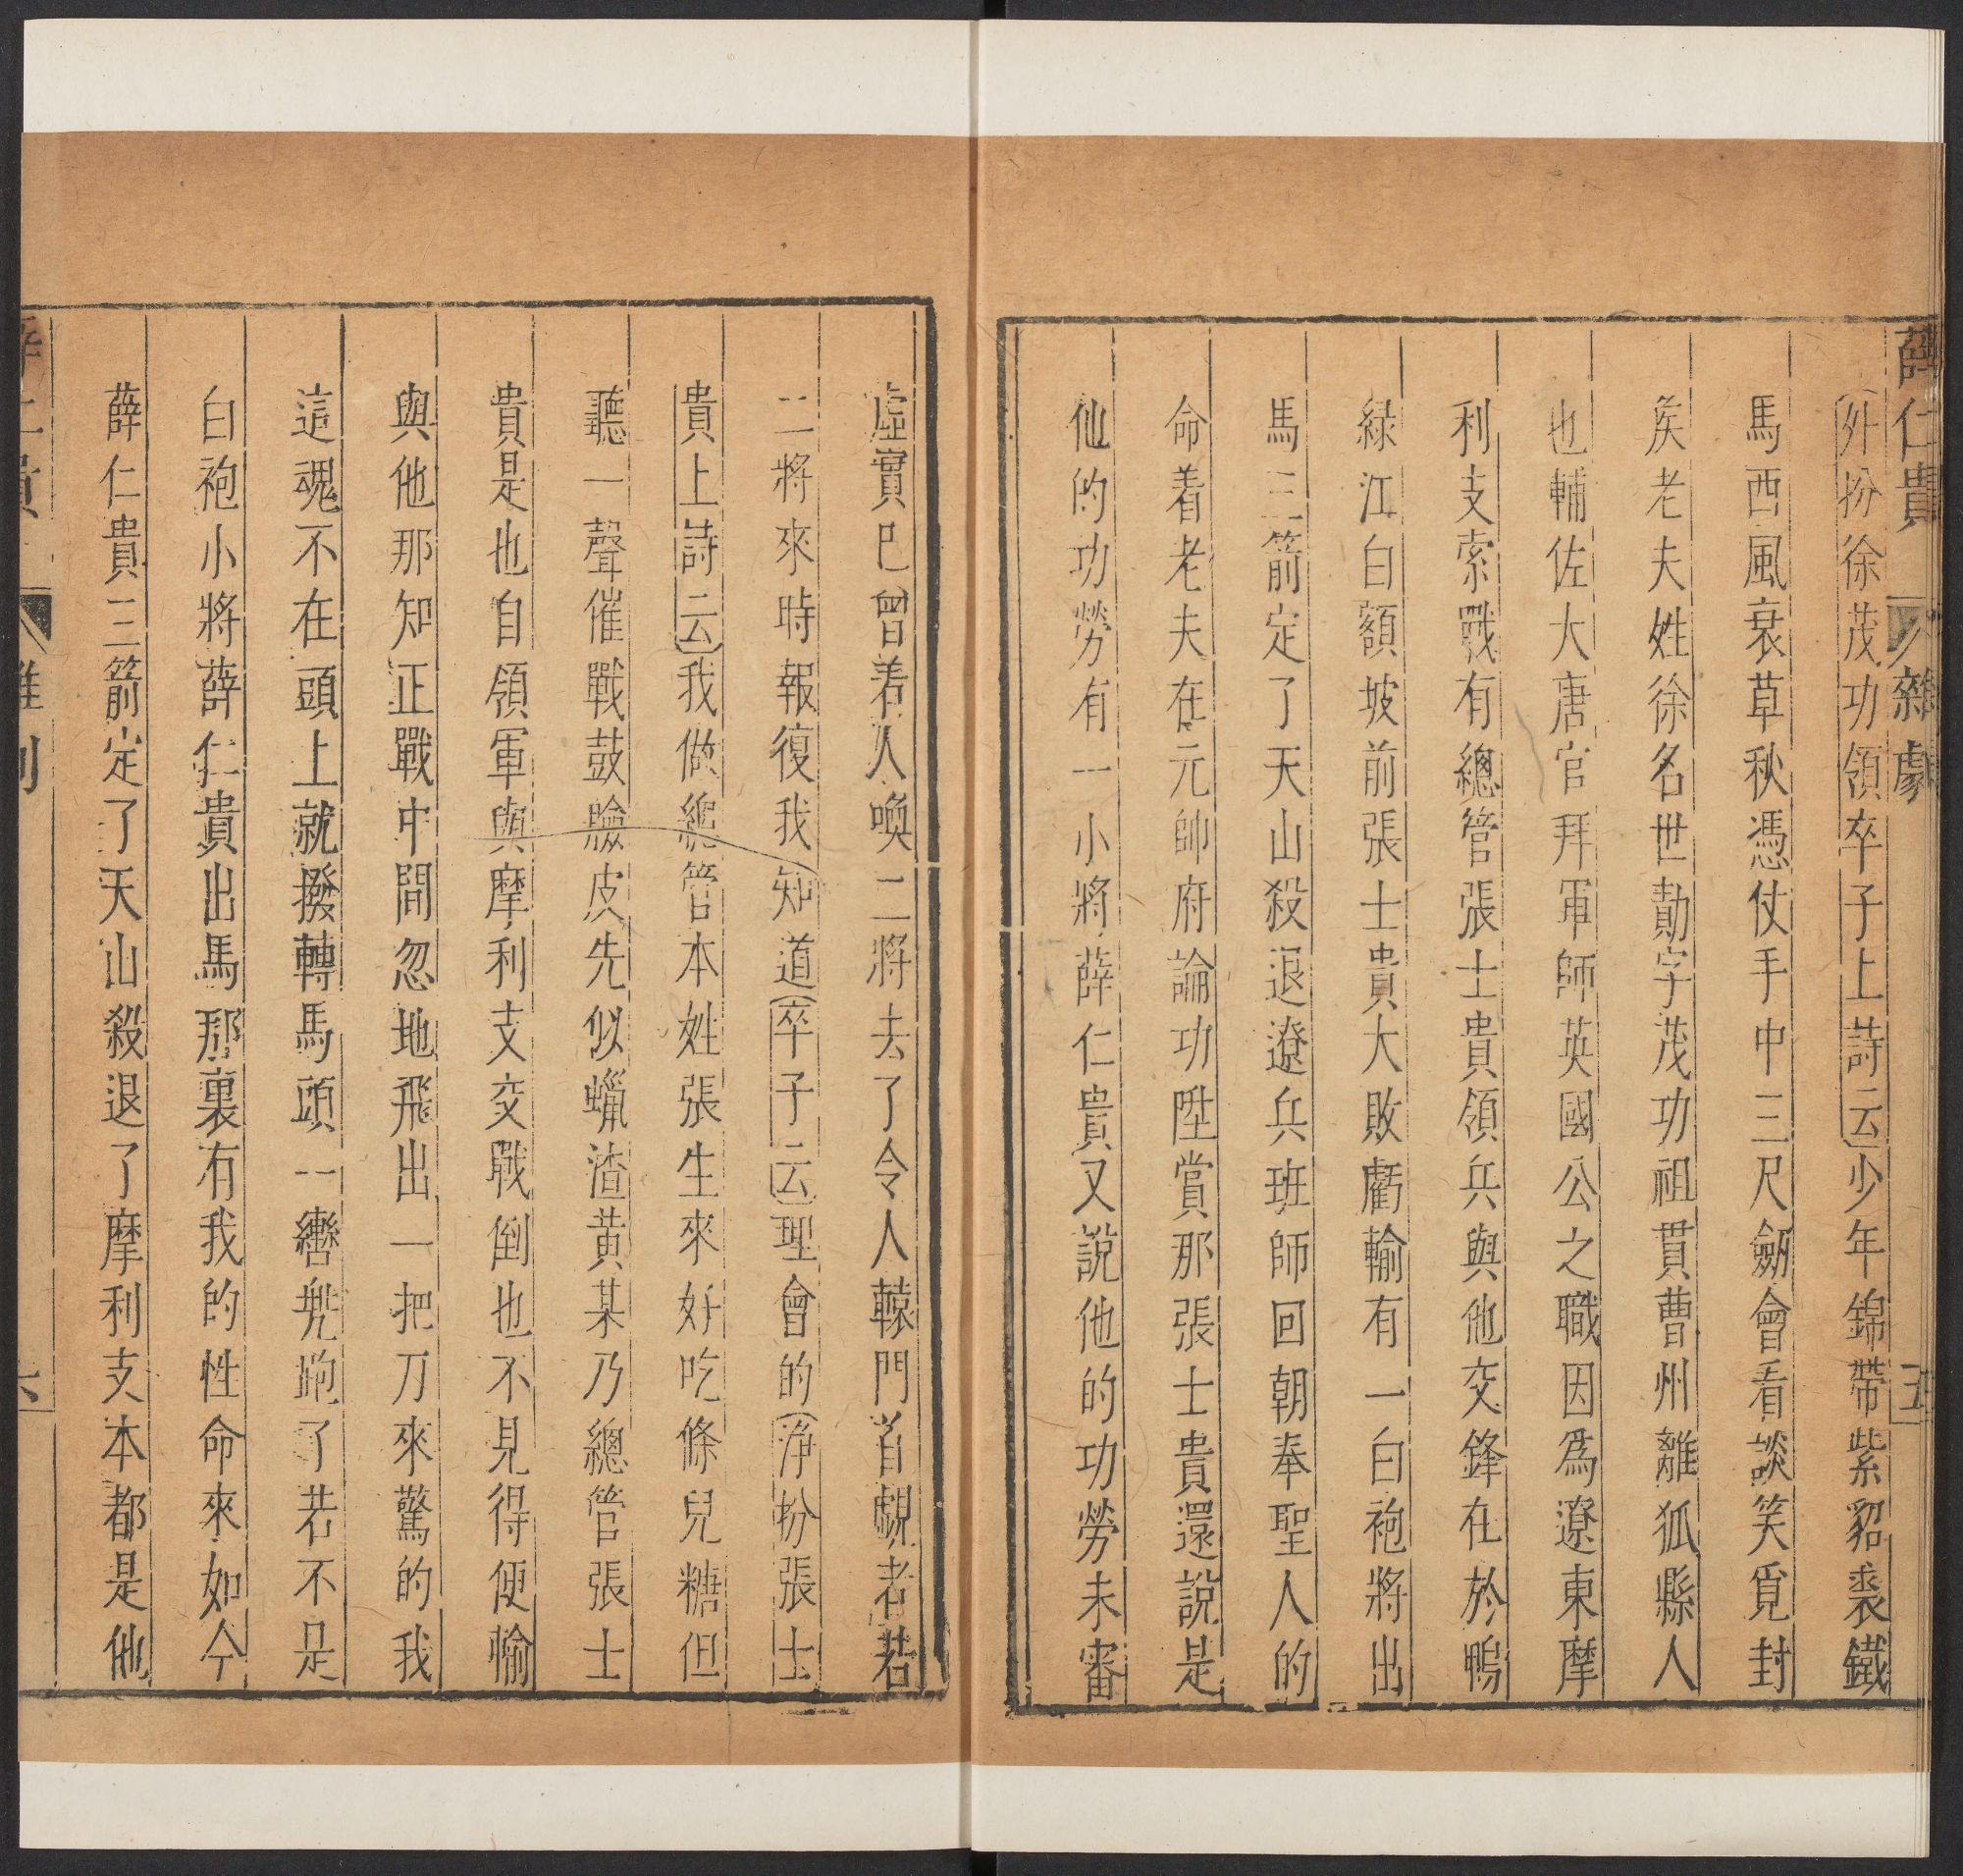 薛仁貴 雜劇 五
外扮徐茂功領卒子上詩云少年錦帶紫貂裘鐵
馬西風衰草秋憑仗手中三尺劒會看談笑覓封
矦老夫姓徐名世勣字茂功祖貫曹州離狐縣人
也輔佐大唐官拜軍師英國公之職因爲遼東摩
利支索戰有總管張士貴領兵與他交鋒在於鴨
綠江白額坡前張士貴大敗虧輸有一白袍將出
馬三箭定了天山殺退遼兵班師回朝奉聖人的
命着老夫在元帥府論功陞賞那張士貴還說是
他的功勞有一小將薛仁貴又說他的功勞未審
虛實已曾着人喚二將去了令人轅門首覷者若
二將來時報復我知道卒子云理會的淨扮張士
貴上詩云我做總管本姓張生來好吃條兒糖但
聽一聲催戰鼓臉皮先似蠟渣黃某乃總管張士
貴是也自領軍與摩利支交戰倒也不見得便輸
與他那知正戰中間忽地飛出一把刀來驚的我
這魂不在頭上就撥轉馬頭一轡兜跑了若不是
白袍小將薛仁貴出馬那裏有我的性命來如今
薛仁貴三箭定了天山殺退了摩利支本都是他